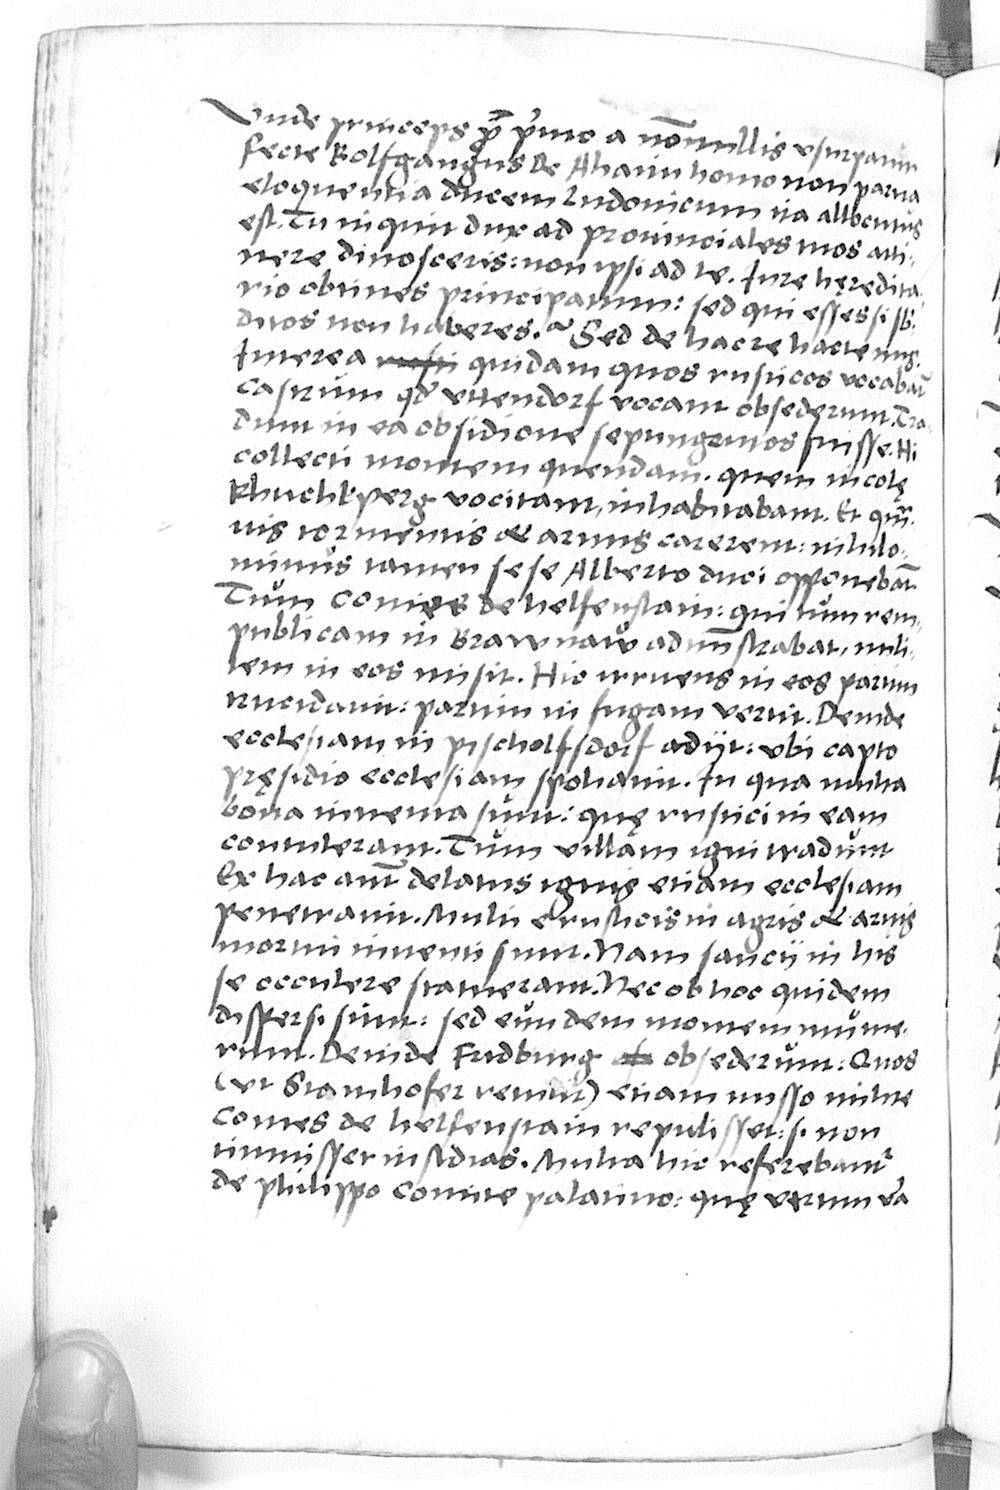 Vnde princeps p̄ p̄mio a nōnullis vsurpatum
fecte Rolfgangus De Ahaim homo non parua
eloquentia ducem Ludouicum ita allocutus
est. Tu inquit dux ad prouinciales tuos atti-
nere dinosceris: non ipsi ad te. Iure heredita-
rio obtines principatum: sed qui esses si sb-
ditos non haberes. Sed de hac re hactenus.
Interea quidam quos rusticos vocabāt
castrum qd vttendorf vocant obsederunt. Tra-
dunt in ea obsidione septungentos fuisse. Hi
collecti montem quendam. quem incolę
Rhuchlperg vocitant, inhabitabant. Et quā-
uis tormentis & armis carerent: nihilo-
minus tamen sese Alberto duci opponebāt
Tum comes de helfenstain: qui tum rem-
publicam in Brawnaw admīstrabat, mili-
tem in eos misit. Hic irruens in eos partim
trucidauit: partim in fugam vertit. Deinde
ecclesiam in pischolfsdorf adijt: vbi capto
pręsidio ecclesiam spoliauit. In qua multa
bona inuenta sunt: quę rustici in eam
contulerant. Tum villam igni tradunt
Ex hac aut̄ delatus ignis etiam ecclesiam
penetrauit. Multi e rusticis in agris & aruis
mortui inuenti sunt. Nam saucij in his
se occulere statuerant. Nec ob hoc quidem
dispersi sunt: sed eundem montem muni-
runt. Deinde Fridburg obsederunt: Quos
(vt Stainhofer retulit) etiam misso milite
Comes de helfenstain repulisset: si non
timuisset insidias. Multa hic referebant̄
de philippo Comite palatino: quę vtrum v̄a